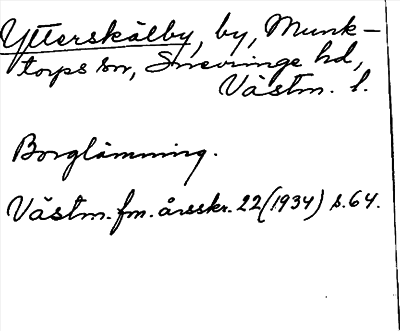 Ytterskälby, by, Munk-
torps sn, Snevringe hd,
Västm. l.
Borglämning.
Västm. fm. årsskr. 22 (1934) s. 64.